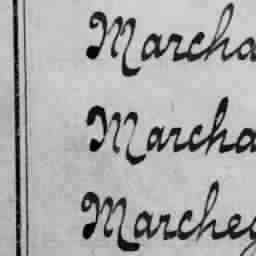 Marcha
Marcha
Marcheg